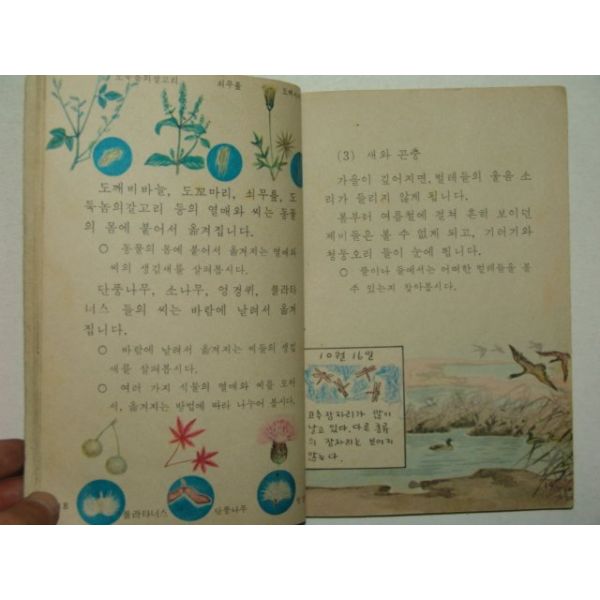 도둑놈의갈고리 쇠무릎 도깨비
도깨비바늘, 도꼬마리, 쇠무릎, 도
둑놈의갈고리 등의 열매와 씨는 동물
의 몸에 붙어서 옮겨집니다.
○ 동물의 몸에 붙어서 옮겨지는 열매와
씨의 생김새를 살펴봅시다.
단풍나무, 소나무, 엉겅퀴, 플라타
너스 들의 씨는 바람에 날려서 옮겨
집니다.
○ 바람에 날려서 옮겨지는 씨들의 생김
새를 살펴봅시다.
○ 여러 가지 식물의 열매와 씨를 모아
서, 옮겨지는 방법에 따라 나누어 봅시다.
플라타너스 단풍나무
8
(3) 새와 곤충
가을이 깊어지면, 벌레들의 울음 소
리가 들리지 않게 됩니다.
봄부터 여름철에 걸쳐 흔히 보이던
제비들은 볼 수 없게 되고, 기러기와
청둥오리 들이 눈에 띕니다.
○ 풀이나 들에서는 어떠한 벌레들을 볼
수 있는지 찾아봅시다.
10월 16일
고추잠자리가 많이
날고 있다. 다른 종류
의 잠자리는 보이지
않는다.